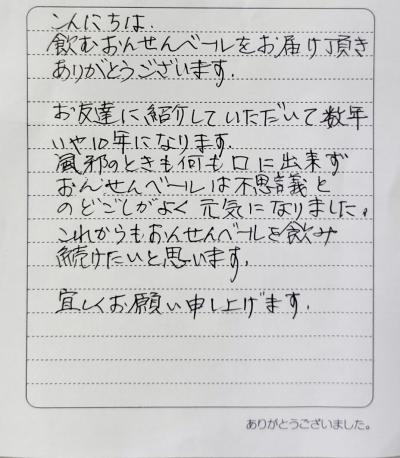 こんにちは.
飲むおんせんベールをお届け頂き
ありがとうございます.
お友達に紹介していただいて数年
いや10年になります.
風邪のときも何も口に出来ず
おんせんベールは不思議と
のどごしがよく元気になりました。
これからもおんせんベールを飲み
続けたいと思います.
宜しくお願い申し上げます.
ありがとうございました。